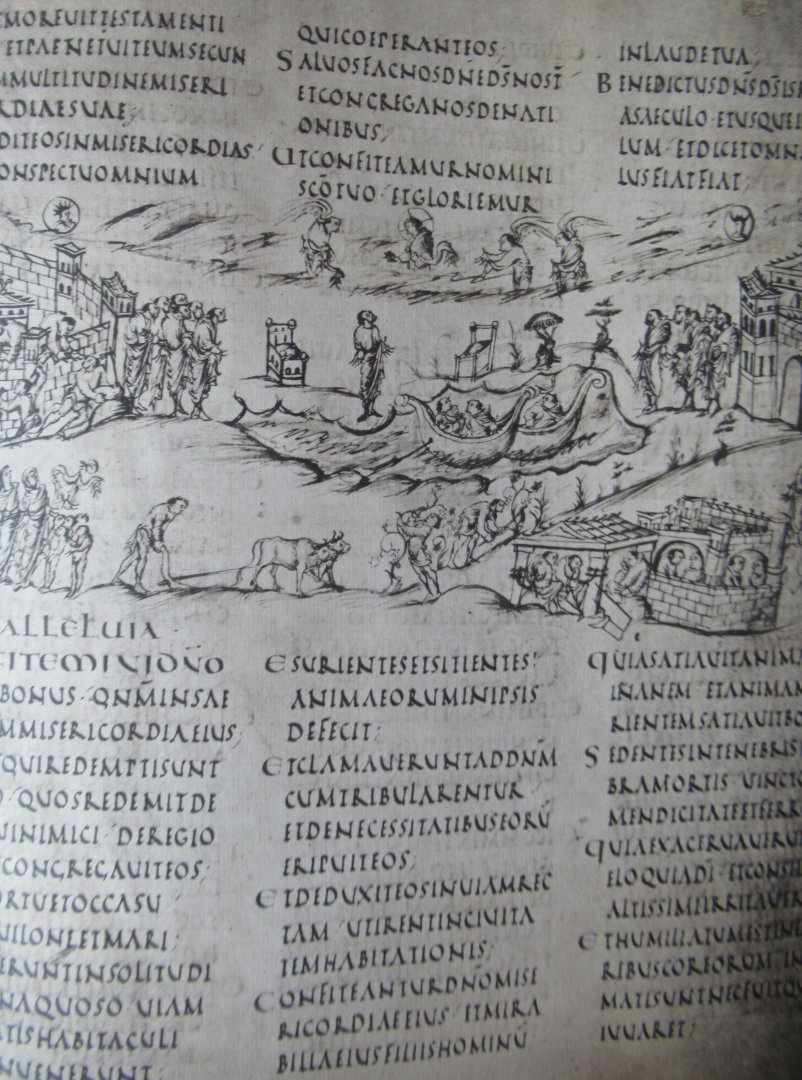 EMORFUITTESTAMENTI
ETPAENETUITEUMSECUN
MMULTITUDINEMISERI
RDIAESUAE;
DITEOSINMISERICORDIAS
ONSPECTUOMNIUM
QUICOEPERANTEOS;
SALUOSFACNOSDN̄EDS̄NOST̄
ETCONGREGANOSDENATI
ONIBUS;
UTCONFITEAMURNOMINI
SC̄OTUO ETGLORIEMUR
INLAUDETUA;
BENEDICTUSDN̄SDS̄ISR
ASAECULO ETUSQUE
LUM ETDICETOMN
LUSFIATFIAT;
ALLELUIA
FITEMINIDN̄O
BONUS QNM̄INSAE
MMISERICORDIAEIUS;
QUIREDEMPTISUNT
O QUOSREDEMITDE
UINIMICI DEREGIO
CONGREGAUITEOS;
ORTUETOCCASU
UILONEETMARI;
ERUNTINSOLITUDI
NAQUOSO UIAM
ATISHABITACULI
NUENERUNT;
ESURIENTESETSITIENTES;
ANIMAEORUMINIPSIS
DEFECIT;
ETCLAMAUERUNTADDN̄M
CUMTRIBULARENTUR
ETDENECESSITATIBUSEORŪ
ERIPUITEOS;
ETDEDUXITEOSINUIAMREC
TAM UTIRENTINCIUITA
TEMHABITATIONIS;
CONFITEANTURDN̄OMISE
RICORDIAEEIUS ETMIRA
BILIAEIUSFILIISHOMINŪ
QUIASATIAUITANIM
INANEM ETANIMAM
RIENTEMSATIAUITBO
SEDENTESINTENEBRIS
BRAMORTIS UINCTO
MENDICITATEETFERR
QUIAEXACERUAUERU
ELOQUIADĪ ETCONSIL
ALTISSIMIIRRITAUER
ETHUMILIATUMESTINL
RIBUSCOREORUM IN
MATISUNTNECFUITQU
IUUARET;